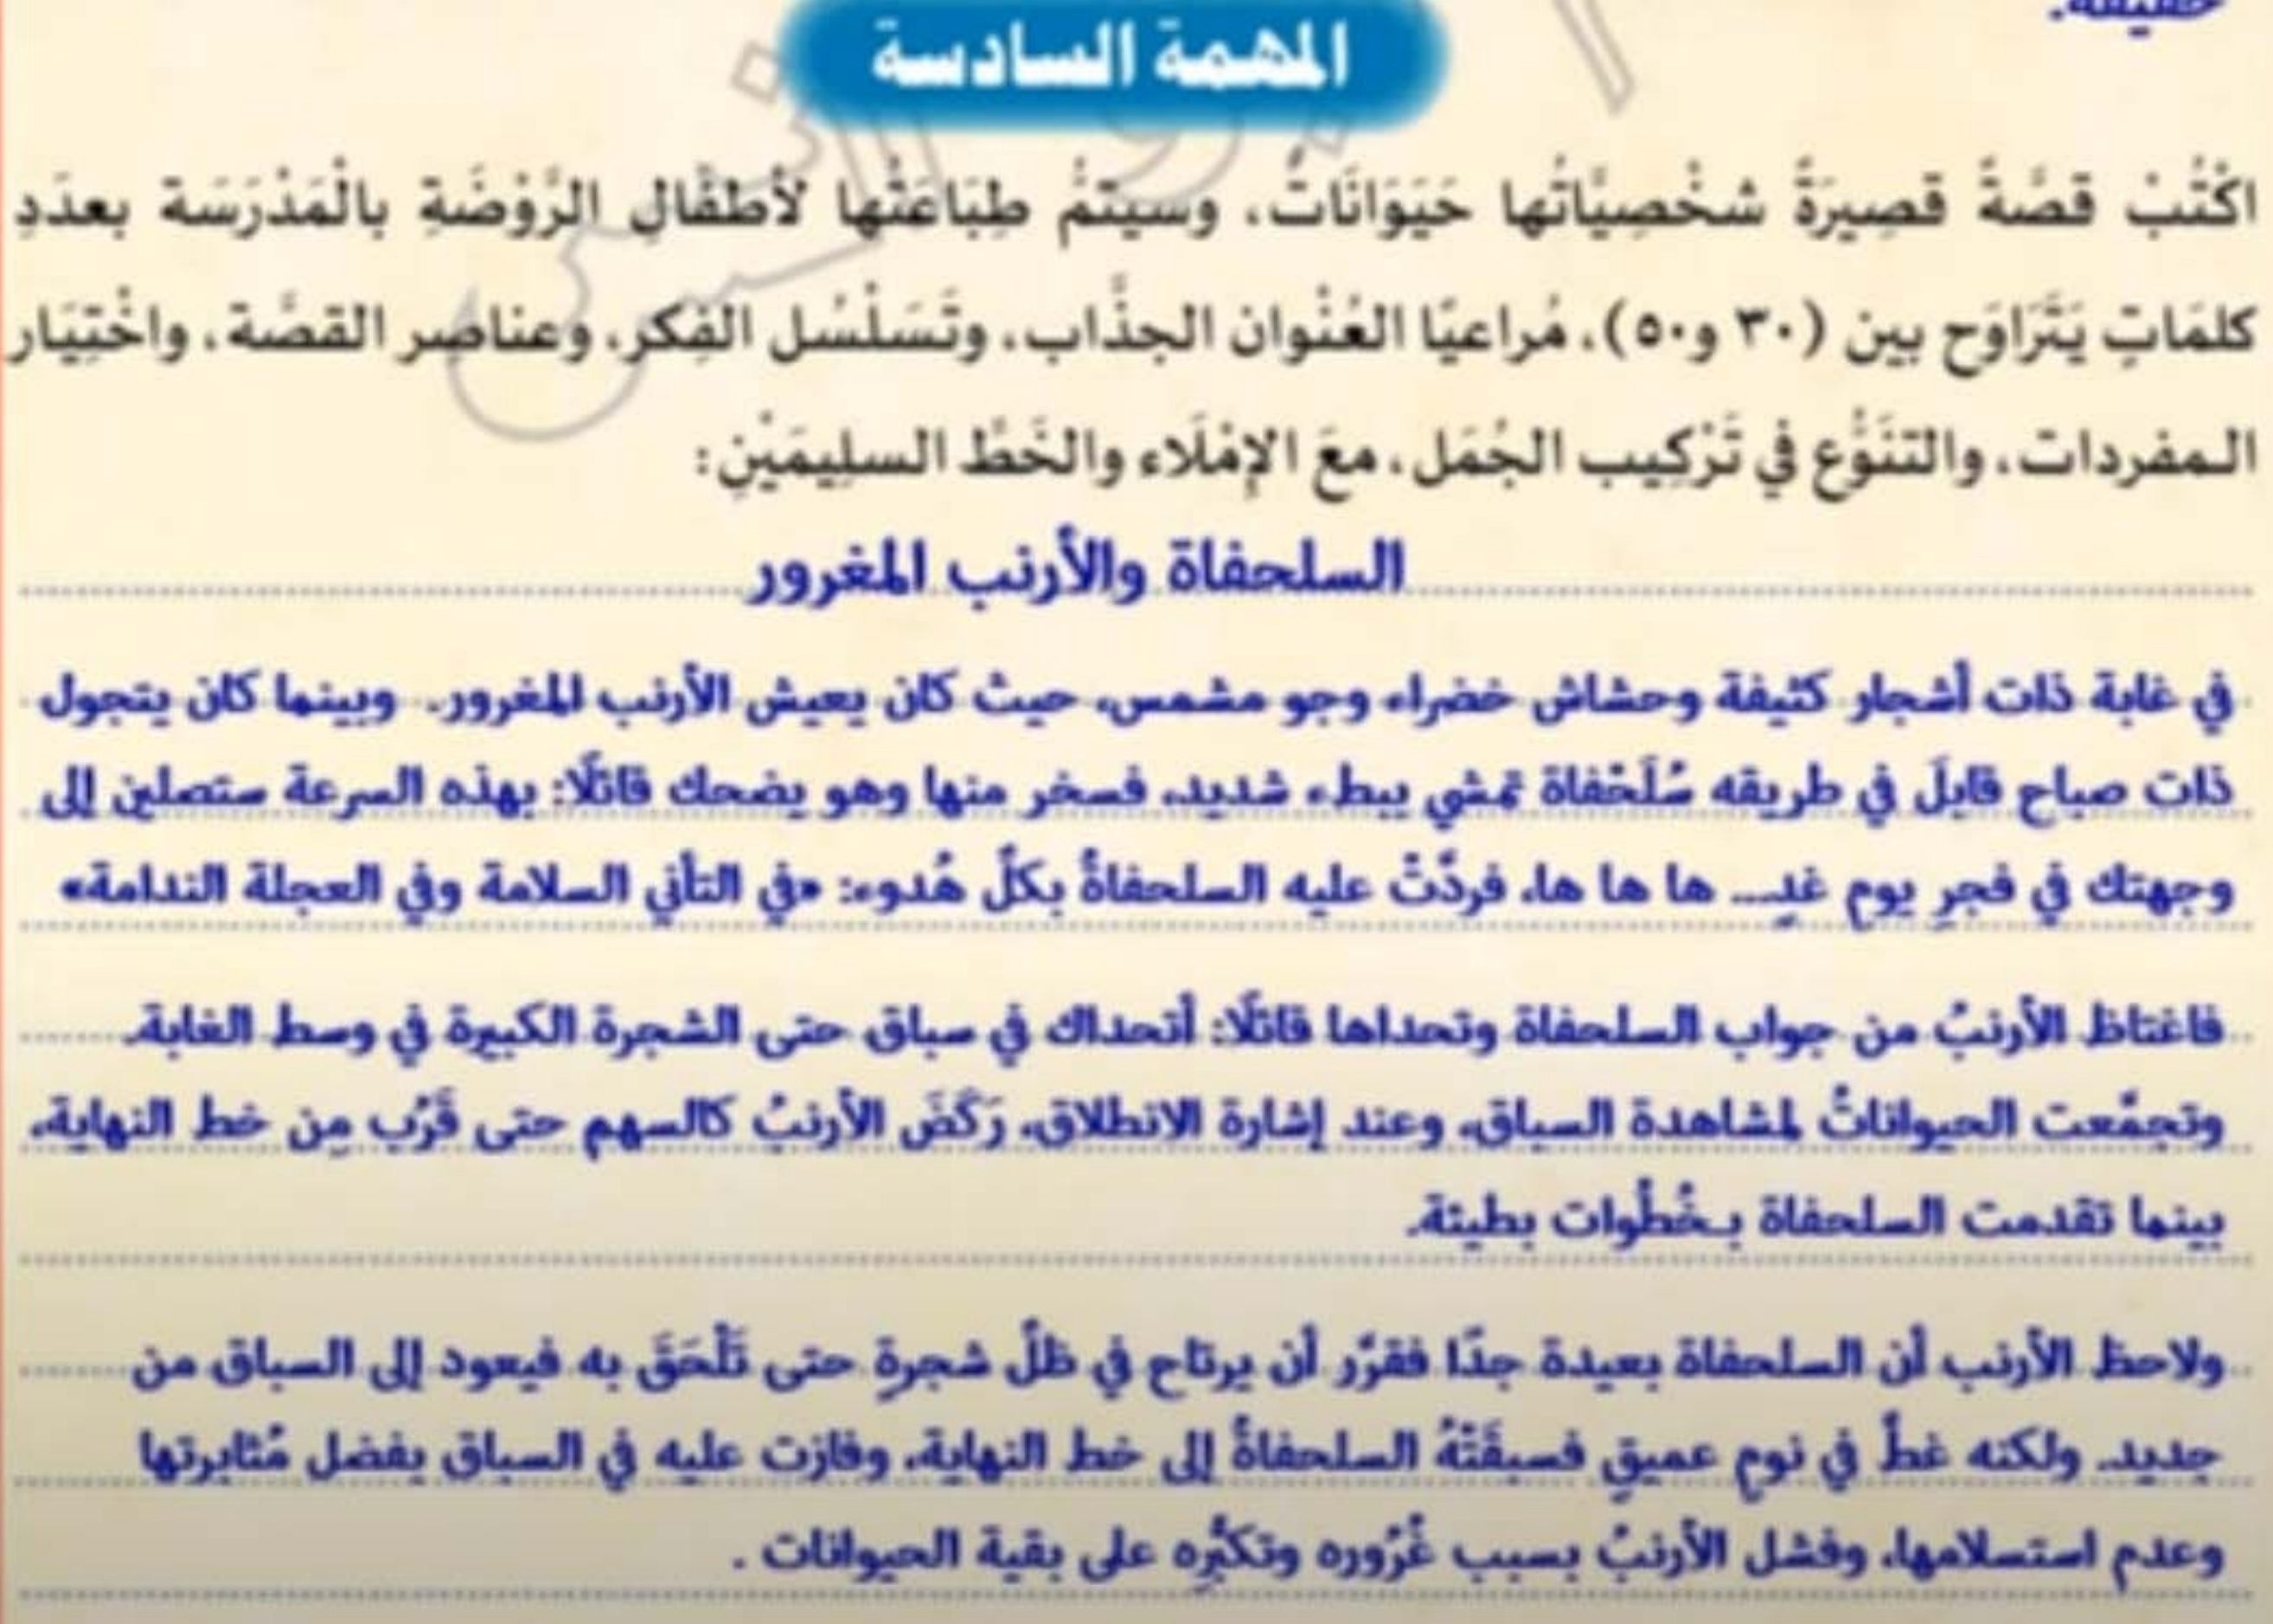 خفيفة.
المهمة السادسة
اكْتُبْ قصَّةً قصِيرَةً شخْصِيَّاتُها حَيَوَانَاتٌ، وسَيتمُّ طِبَاعَتُها لأطفَالِ الرَّوْضَةِ بالْمَدْرَسَة بعدَدِ
كلمَاتٍ يَتَرَاوَح بين (٣٠ و٥٠)، مُراعيًا العُنْوان الجذَّاب، وتَسَلْسُل الفِكر، وعناصِر القصَّة، واخْتِيَار
المفردات، والتنَوُّع في تَرْكِيب الجُمَل، معَ الإمْلَاء والخَطّ السلِيمَيْنِ:
السلحفاة والأرنب المغرور
في غابة ذات أشجار كثيفة وحشاش خضراء وجو مشمس، حيث كان يعيش الأرنب المغرور.. وبينما كان يتجول
ذات صباح قابلَ في طريقه سُلَحْفاة تمشي ببطء شديد، فسخر منها وهو يضحك قائلًا: بهذه السرعة ستصلين إلى
وجهتك في فجرِ يوم غدٍ... ها ها ها، فردَّتْ عليه السلحفاةُ بكلّ هُدوء: «في التأني السلامة وفي العجلة الندامة»
فاغتاظ الأرنبُ من جواب السلحفاة وتحداها قائلًا: أتحداك في سباق حتى الشجرة الكبيرة في وسط الغابة.
وتجمَّعت الحيواناتُ لمشاهدة السباق، وعند إشارة الانطلاق، رَكَضَ الأرنبُ كالسهم حتى قَرُب مِن خط النهاية،
بينما تقدمت السلحفاة بخُطُوات بطيئة.
ولاحظ الأرنب أن السلحفاة بعيدة جدًّا فقرَّر أن يرتاح في ظلّ شجرةٍ حتى تَلْحَقَ به فيعود إلى السباق من
جديد. ولكنه غطَّ في نومٍ عميقٍ فسبقَتْهُ السلحفاةُ إلى خط النهاية، وفازت عليه في السباق بفضل مُثابرتها
وعدم استسلامها، وفشل الأرنبُ بسبب غُرُوره وتكبُّرِه على بقية الحيوانات .